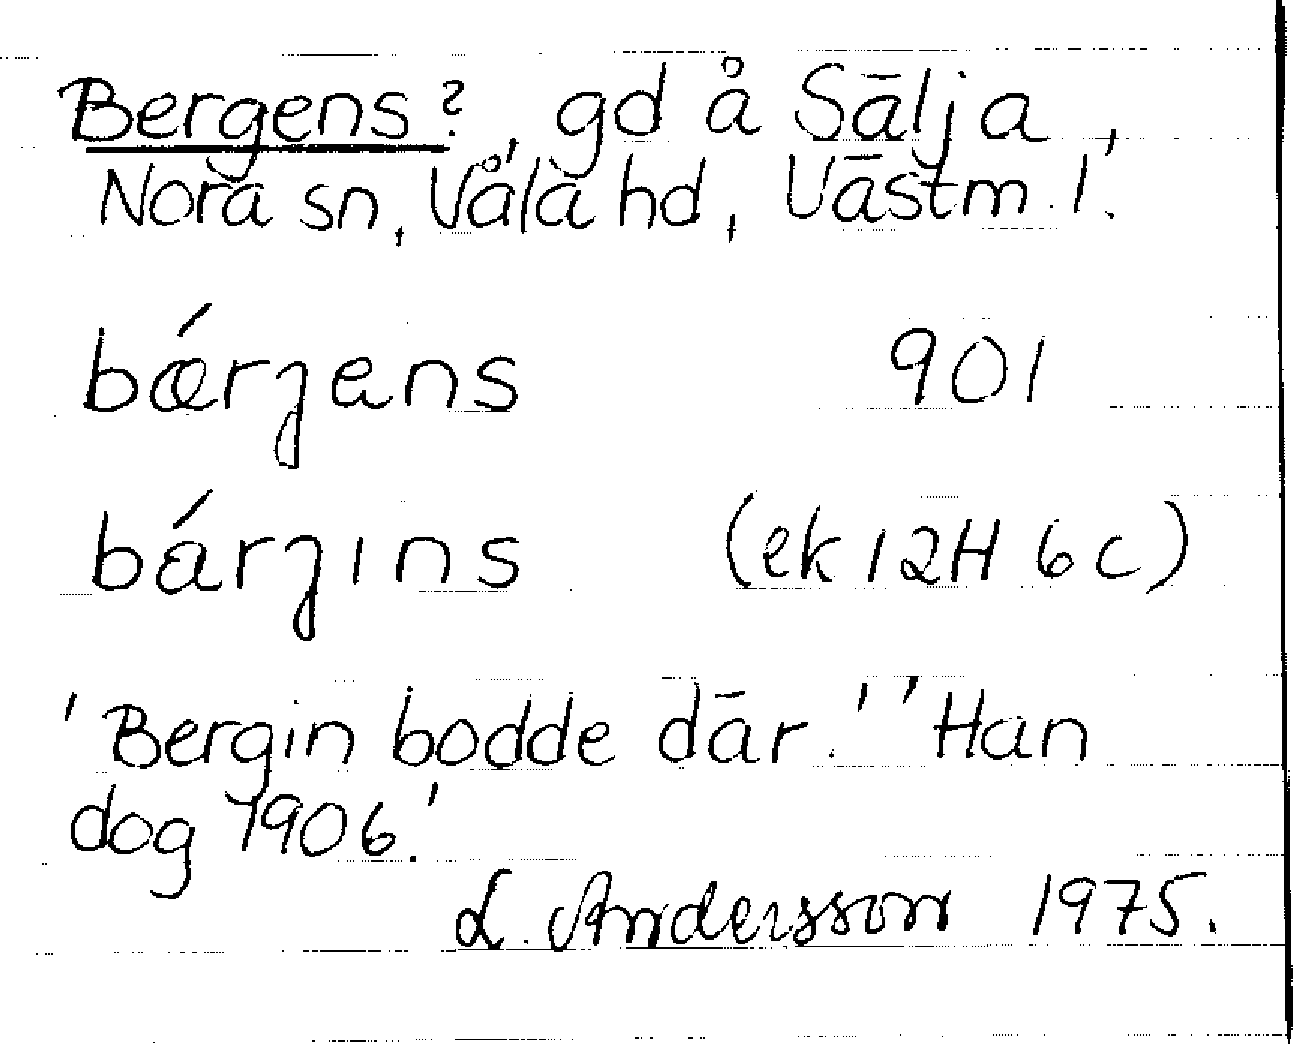 Bergens?, gd å Sälja,
Nora sn, Våla hd, Västm.l.
bǽrȷens 901
bárȷıns (ek 12H 6c)
'Bergin bodde där.' 'Han
dog 1906.'
L. Andersson 1975.